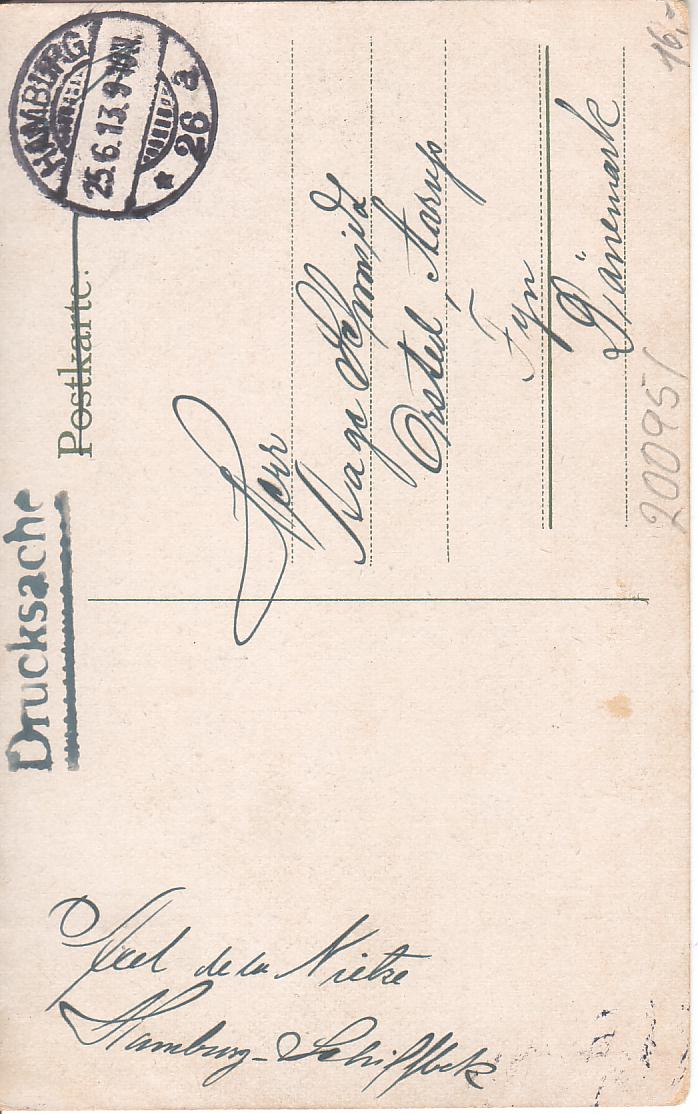 Drucksache
Postkarte.
HAMBURG
25.6.13. 9-10N.
* 26 a
Herr
Aage Schmidt
Orsted, Aarup
Fyn
Dänemark
Axel de la Nietze
Hamburg-Schiffbek
16,-
200951